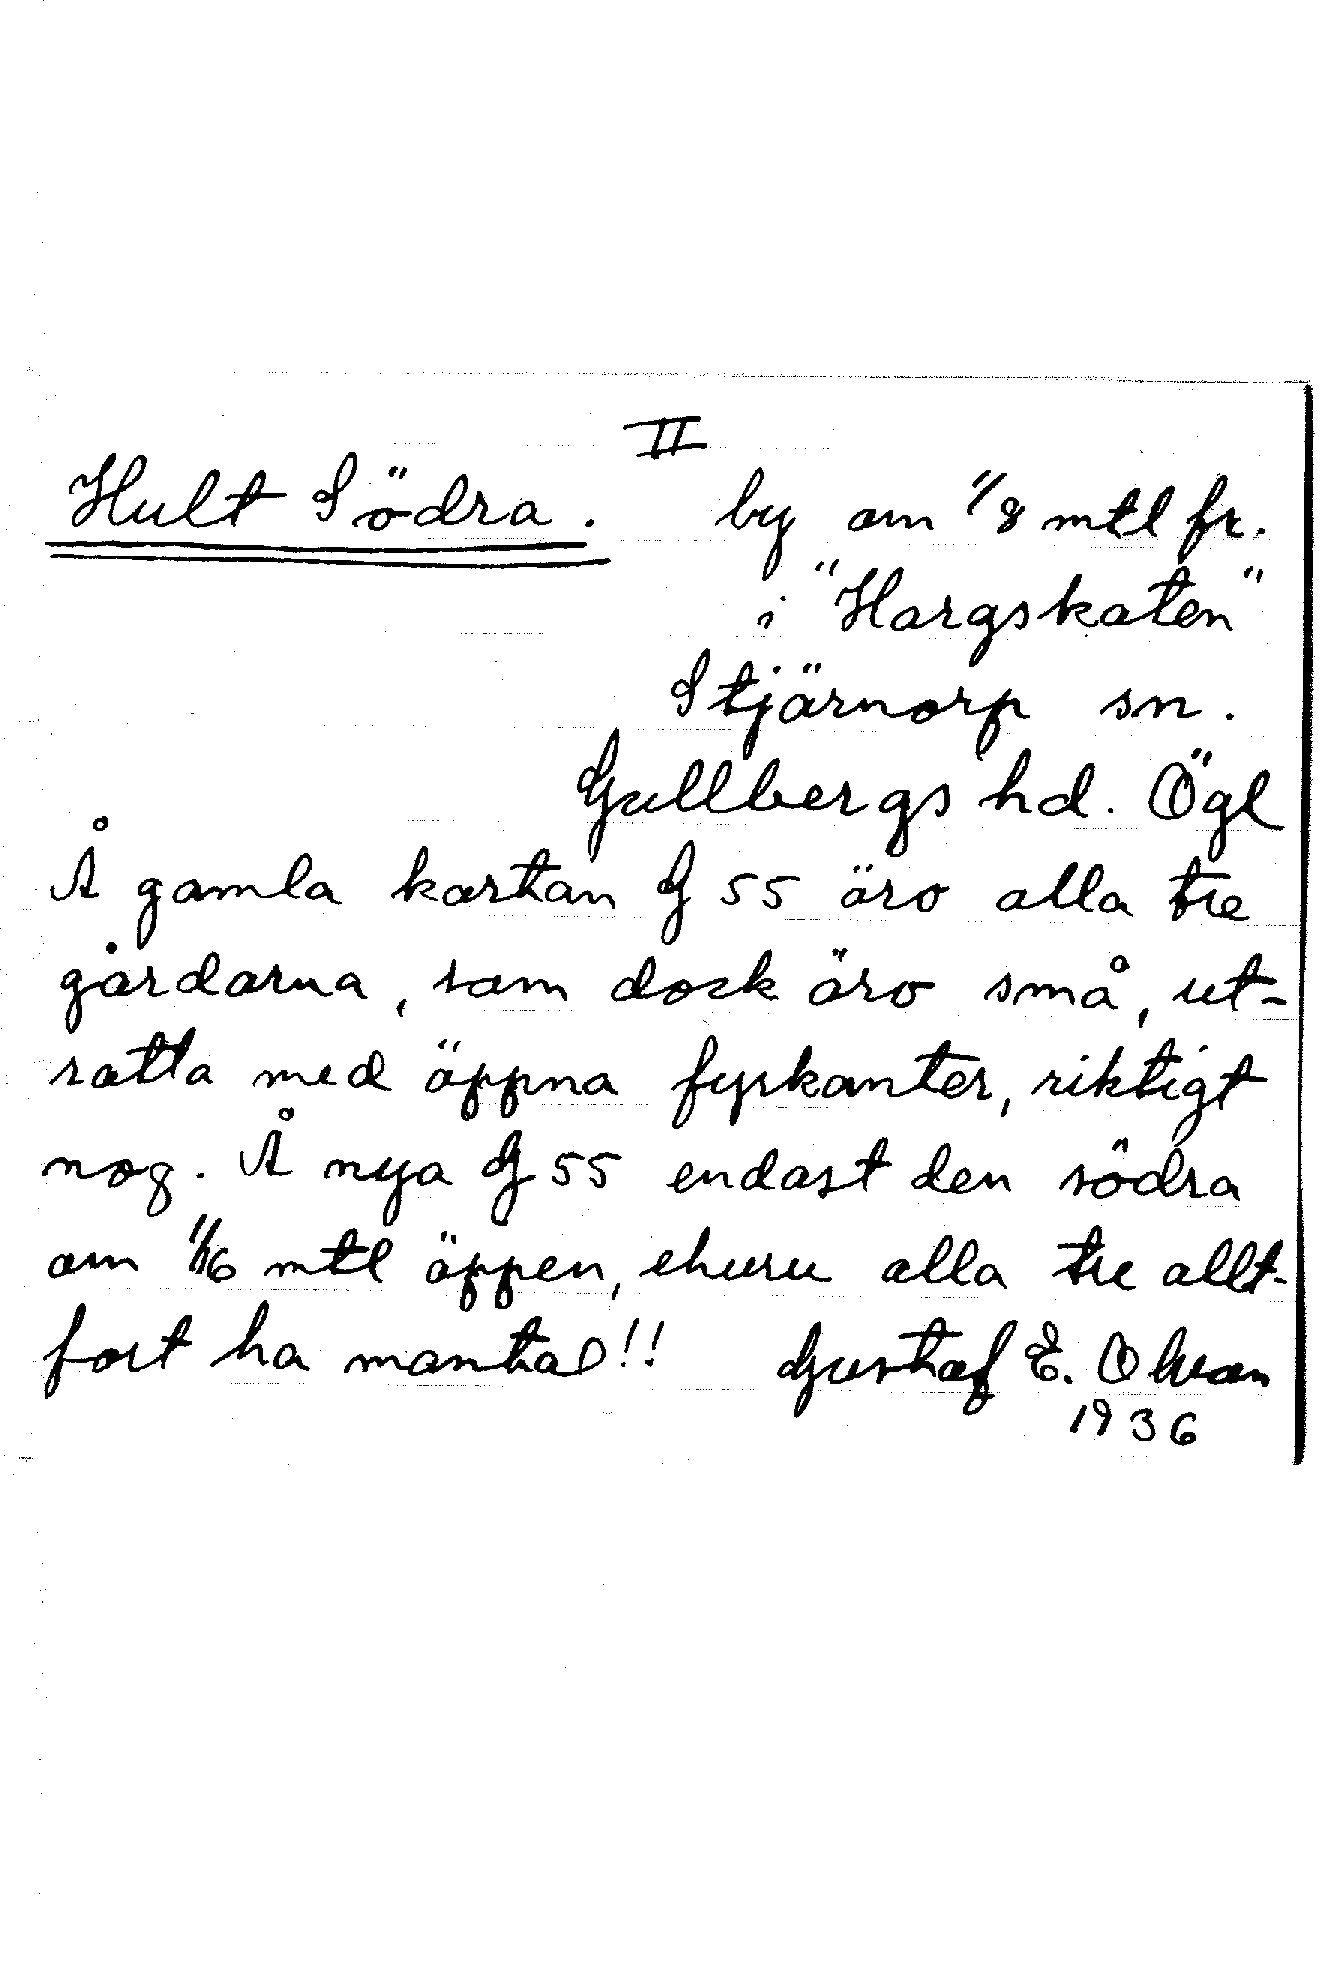 II
Hult Södra. by om 1/8 mtl fr.
i "Hargskaten"
Stjärnorp sn.
Gullbergs hd. Ögl
Å gamla kartan G 55 äro alla tre
gårdarna, som dock äro små, ut-
satta med öppna fyrkanter, riktigt
nog. Å nya G 55 endast den södra
om 1/16 mtl öppen, ehuru alla tre allt-
fort ha mantal!! Gustaf E. Olson
1936